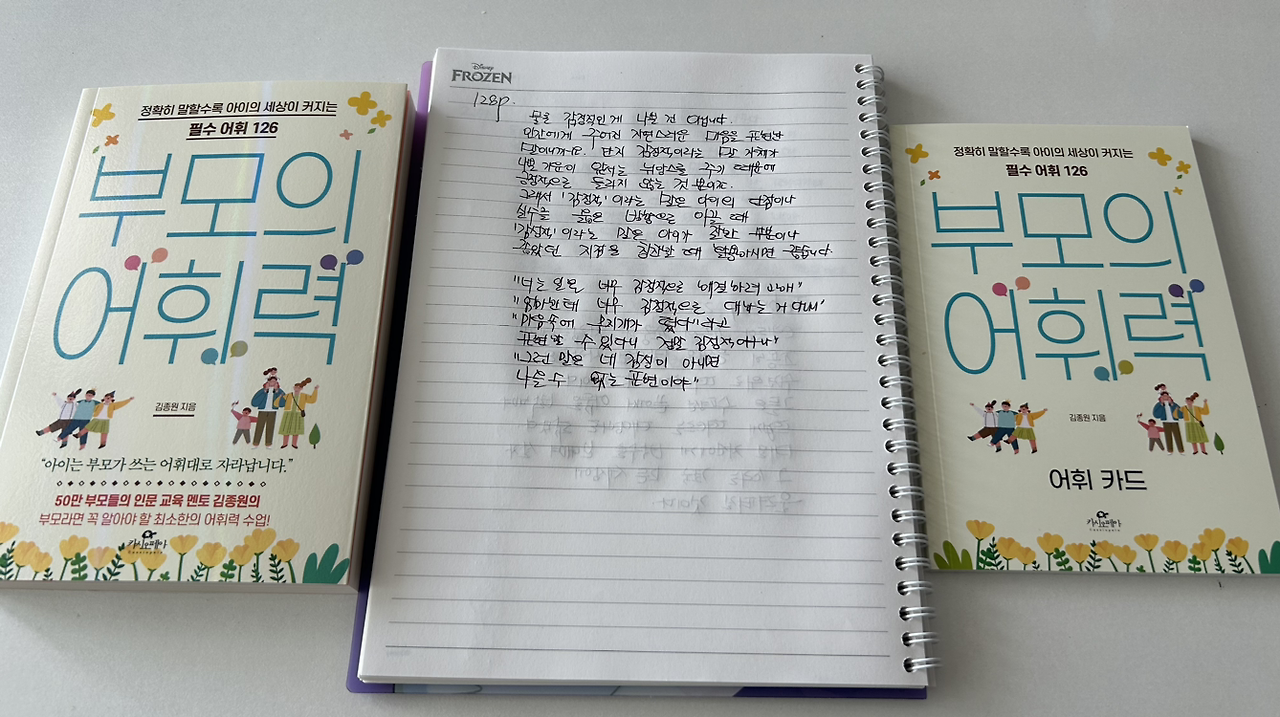 정확히 말할수록 아이의 세상이 커지는
필수 어휘 126
부모의
어휘력
김종원 지음
“아이는 부모가 쓰는 어휘대로 자라납니다.”
50만 부모들의 인문 교육 멘토 김종원의
부모라면 꼭 알아야 할 최소한의 어휘력 수업!
카시오페아
Cassiopeia
Disney
FROZEN
128p.
물론 감정적인 게 나쁠 건 아닙니다.
인간에게 주어진 자연스러운 마음을 표현한
말이니까요. 단지 감정적이라는 말 자체가
나쁜 기운이 앞서는 뉘앙스를 주기 때문에
긍정적으로 들리지 않는 것 뿐이죠.
그래서 '감정적'이라는 말은 아이의 단점이나
실수를 옳은 방향으로 이끌 때
'감성적'이라는 말은 아이가 잘한 부분이나
좋았던 지점을 칭찬할 때 활용하시면 좋습니다
"너는 일을 너무 감정적으로 해결하려고 해"
너무 감정적으로 대하는 거 아니니
"마음속에 무지개가 떴다"라고
표현할 수 있다니 정말 감성적이구나"
"그런 말은 네 감성이 아니면
나올 수 없는 표현이야"
정확히 말할수록 아이의 세상이 커지는
필수 어휘 126
부모의
어휘력
김종원 지음
어휘 카드
카시오페아
Cassiopeia